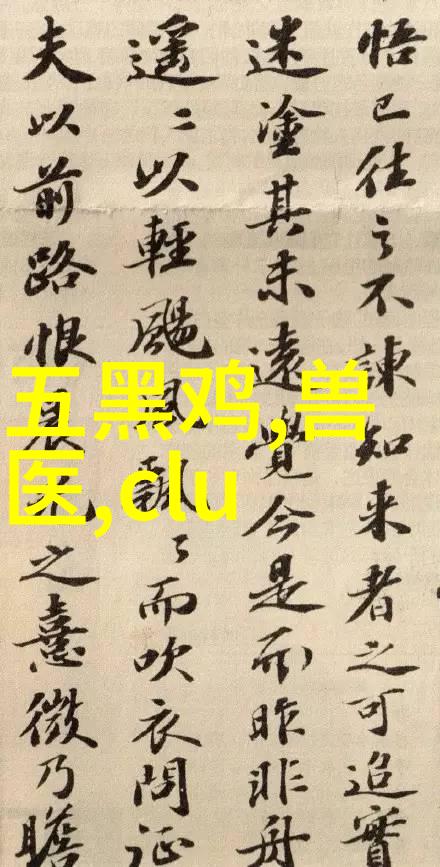 悟已往之不諫知来者之可追實
迷塗其未遠覺今是而昨非舟
遥々以輕颺風飄々而吹衣問征
夫以前路恨晨光之熹微乃瞻
五黑鸡,兽
医,clu